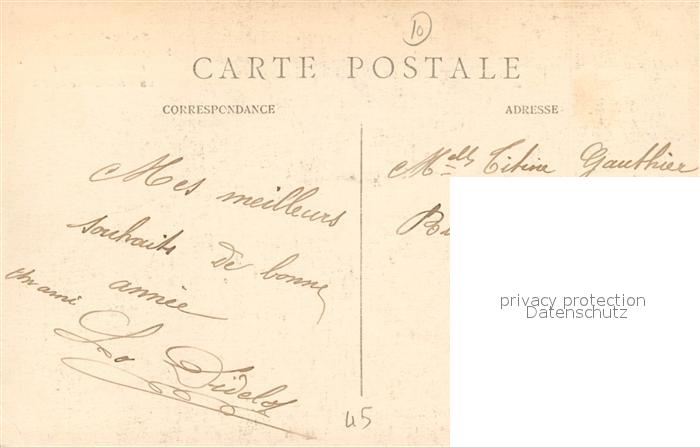 10
CARTE POSTALE
CORRESPONDANCE
ADRESSE
Mes meilleurs
souhaits de bonne
année
Un ami
Didelot
Melle Titine Gauthier
privacy protection
Datenschutz
45